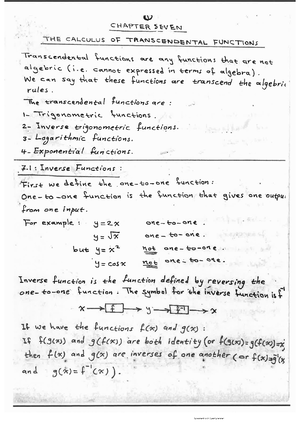 CHAPTER SEVEN
THE CALCULUS OF TRANSCENDENTAL FUNCTIONS
Transcendental functions are any functions that are not
algebraic (i.e. cannot expressed in terms of algebra).
We can say that these functions are transcend the algebric
rules.
The transcendental functions are :
1- Trigonometric functions.
2- Inverse trigonometric functions.
3- Logarithmic functions.
4- Exponential functions.
7.1 : Inverse Functions :
First we define the one-to-one function:
One-to-one function is the function that gives one output
from one input.
For example : y = 2x one-to-one.
y = √x one-to-one.
but y = x² not one-to-one
y = cosx not one-to-one.
Inverse function is the function defined by reversing the
one-to-one function. The symbol for the inverse function is f⁻¹
x → f → y → f⁻¹ → x
If we have the functions f(x) and g(x) :
If f(g(x)) and g(f(x)) are both identity (or f(g(x)) = g(f(x)) = x)
then f(x) and g(x) are inverses of one another (or f(x) = g⁻¹(x)
and g(x) = f⁻¹(x) ).